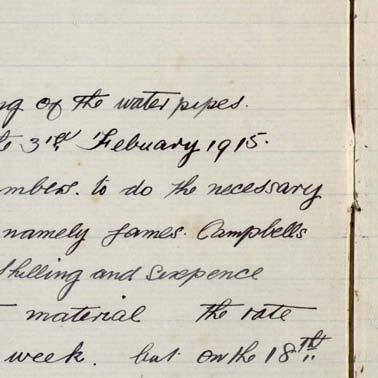 ng of the water pipes.
te 3rd Febuary 1915.
mbers. to do the necessary
namely James. Campbells
shilling and sixpence
material the rate
week. but on the 18th